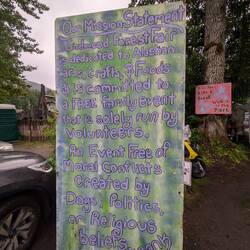 Our Mission Statement
Girdwood Forest Fair
is dedicated to Alaskan
arts, crafts, & Foods
& is committed to
a FREE family Event
that is solely run by
volunteers.
An Event Free of
Moral Conflicts
Created by
Dogs, Politics,
or Religious
beliefs